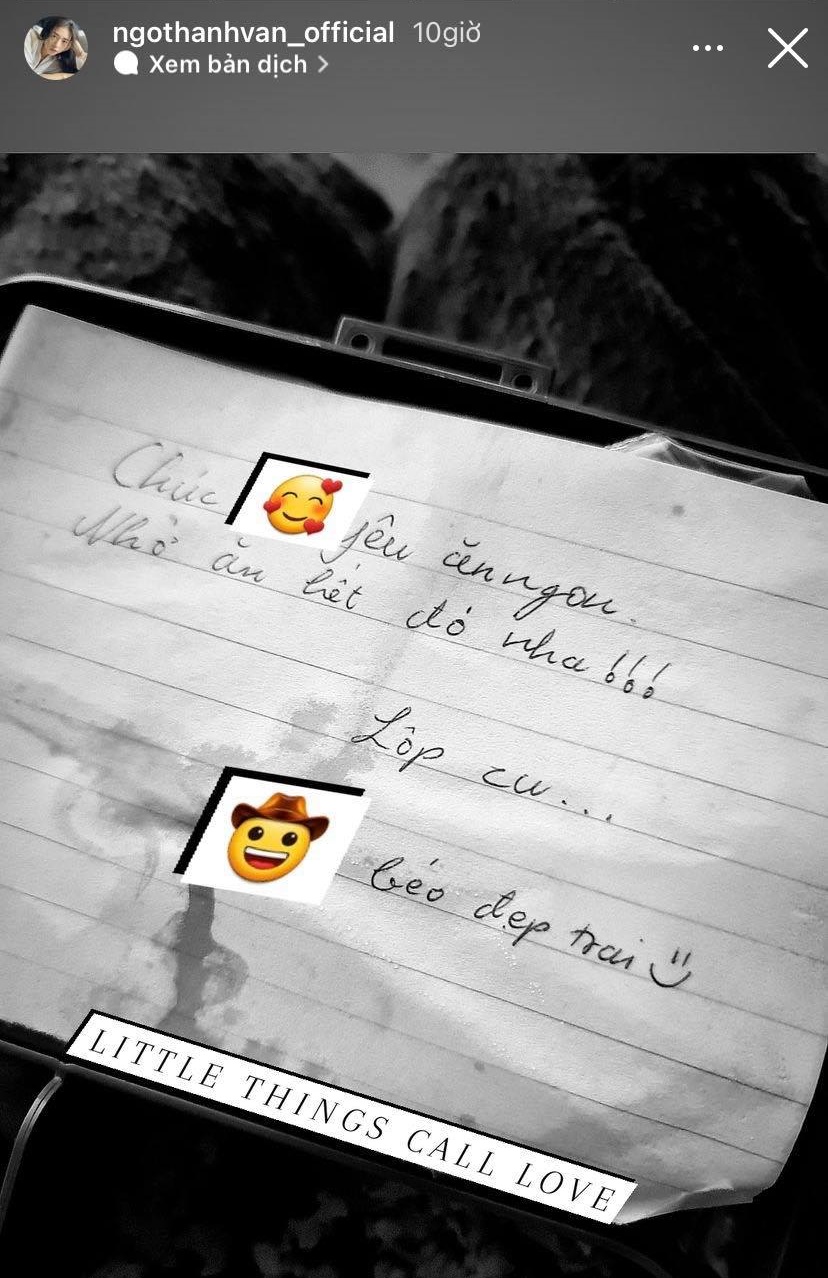 ngothanhvan_official 10giờ
Xem bản dịch >
Chúc 🥰 yêu ăn ngon.
Nhớ ăn hết đó nha!!!
Lốp cu...
🤠 béo đẹp trai
LITTLE THINGS CALL LOVE